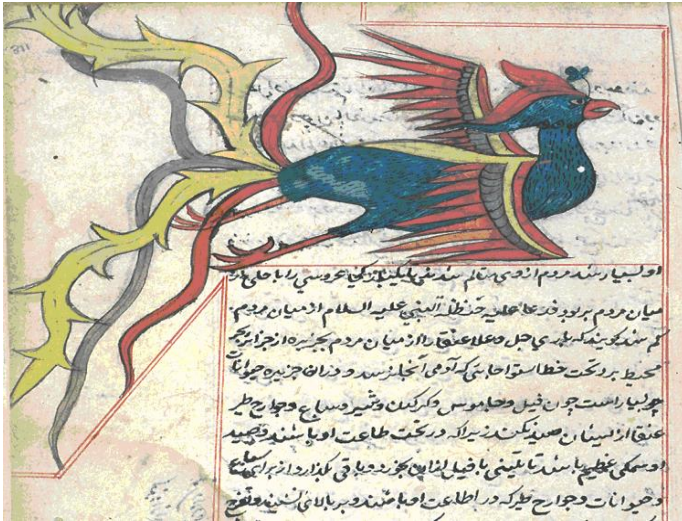 او بسیار شد مردم ازوی متالم شدند تا یکروز عروسی را با حلی از
میان مردم بربود فدعا علیه حنظلة النبی علیه السلام از میان مردم
کم شد گویند که باری جل وعلا عنقا را از میان مردم بجزیره از جزایر بحر
محیط برد تحت خط استوا جایی که آدمی آنجا نرسد و در آن جزیره حیوانات
بسیار است چون فیل و جاموس و کرکدن و شیر و سباع و جوارح طیر
عنقا از ایشان صید نکند زیرا که در تحت طاعت او باشند و صید
او سمکی عظیم باشد تا تنینی یا فیل ازین بخورد و باقی بگذارد از برای سباع
و حیوانات و جوارح طیر که در اطاعت او باشند و بر بالای